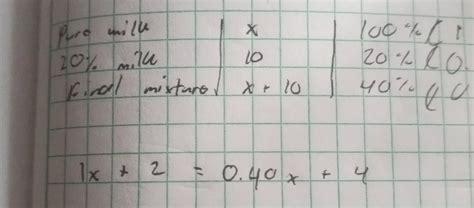 Pure milk | x | 100% ( 1
20% milk | 10 | 20% ( 0.
Final mixture | x + 10 | 40% ( 0
1x + 2 = 0.40x + 4